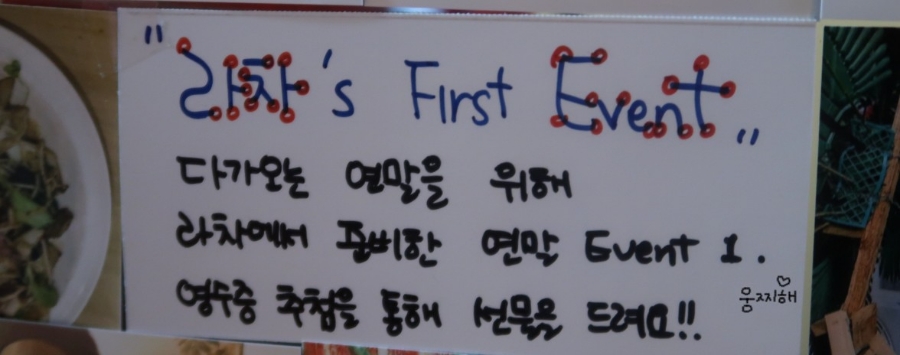 " 라차's First Event "
다가오는 연말을 위해
라차에서 준비한 연말 Event 1.
영수증 추첨을 통해 선물을 드려요!!
웅찌해♡